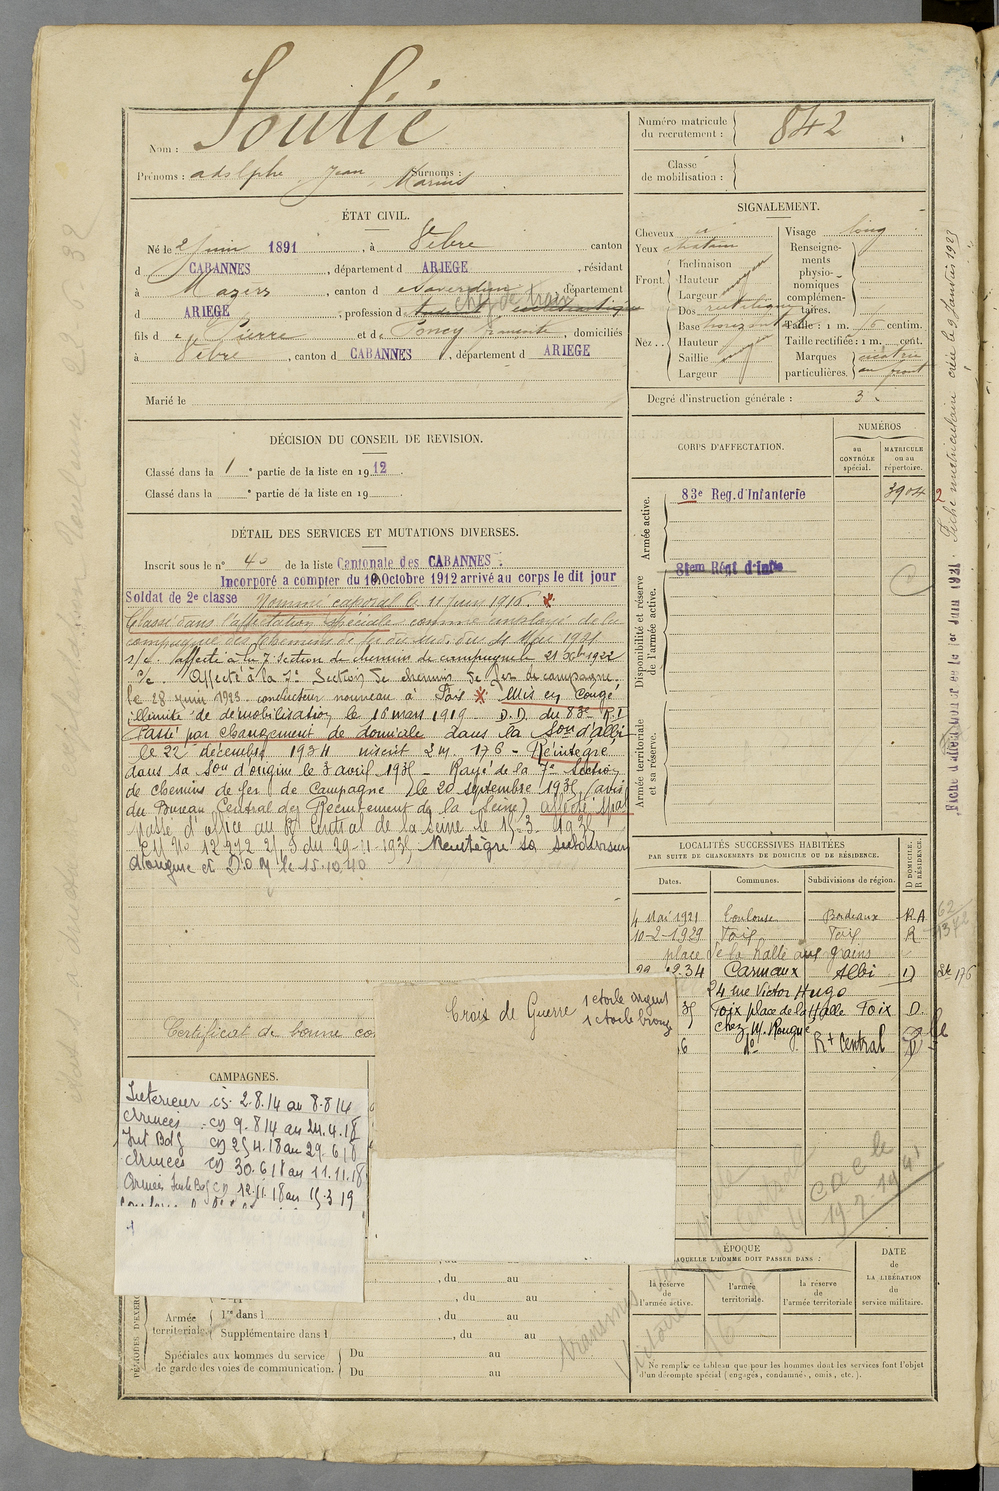 Nom : Soulié
Prénoms : adolphe Jean Marius Surnoms :
Numéro matricule du recrutement : 842
Classe de mobilisation :
ÉTAT CIVIL.
Né le 2 Juin 1891, à Vèbre canton
d CABANNES, département d ARIEGE, résidant
à Mazères, canton d Saverdun, département
d ARIEGE, profession d chef de train
fils d e Pierre et de Poncy, domiciliés
à Vèbre, canton d CABANNES, département d ARIEGE
Marié le
SIGNALEMENT.
Cheveux
Yeux chatain
Front Inclinaison
Hauteur
Largeur
Nez Dos rectiligne
Base horizontal
Hauteur
Saillie
Largeur
Visage long
Renseignements physionomiques complémentaires.
Taille : 1 m. centim.
Taille rectifiée : 1 m. cent.
Marques particulières. cicatrice au front
Degré d'instruction générale : 3
DÉCISION DU CONSEIL DE REVISION.
Classé dans la 1e partie de la liste en 1912.
Classé dans la e partie de la liste en 19
CORPS D'AFFECTATION.
NUMÉROS
au CONTRÔLE spécial.
MATRICULE ou au répertoire.
Armée active.
83e Reg. d'Infanterie 3904
Disponibilité et réserve de l'armée active.
Armée territoriale et sa réserve.
DÉTAIL DES SERVICES ET MUTATIONS DIVERSES.
Inscrit sous le n° 40 de la liste Cantonale des CABANNES.
Incorporé a compter du 10 Octobre 1912 arrivé au corps le dit jour
Soldat de 2e classe Nommé caporal le 11 juin 1916.
Classé dans l'affectation spéciale comme employé de la
compagnie des chemins de fer du
affecté à la 7e section de chemins de campagne le 21
Affecté à la 7e Section de chemins de fer de campagne
le 28 juin 1923 conducteur nouveau à Foix Mis en Congé
illimité de démobilisation le 16 mars 1919 D.D. du 83e R.I
Passé par changement de domicile dans la Son d'albi
le 22 décembre 1934 inscrit 2 m. 176 - Réintégré
dans sa Son d'origine le 3 avril 1935 - Rayé de la 7e Section
de chemins de fer de Campagne le 20 septembre 1935 (avis
du Bureau Central de Recrutement de la Seine) affecté spal
passé d'office au Rt Central de la Seine le 15-3-1935
du 29-11-1935 Réintégré sa subdivision
d'origine et D.O.M le 15.10.40
Certificat de bonne co
LOCALITÉS SUCCESSIVES HABITÉES
PAR SUITE DE CHANGEMENTS DE DOMICILE OU DE RÉSIDENCE.
Dates. Communes. Subdivisions de région. D DOMICILE. R RÉSIDENCE.
4 Mai 1921 Toulouse Bordeaux R.A
10-2-1929 Foix Foix R
place de la halle aux grains
2.34 Carmaux Albi D
24 rue Victor Hugo
35 Foix place de la Halle Foix D.
chez M. Rougé
6 do Rt Central D
Croix de Guerre 1 étoile argent
1 étoile bronze
CAMPAGNES.
Intérieur CS. 2.8.14 au 8.8.14
Armées CD 9.8.14 au 24.4.18
Int Bdg CD 25 4.18 au 29.6.18
Armées CD 30.6.18 au 11.11.18
CD 12.11.18 au 15.3.19
PÉRIODES D'EXERC
, du au
, du au
Armée territoriale. 1re dans l
Supplémentaire dans l , du au
Spéciales aux hommes du service de garde des voies de communication.
Du au
Du au
ÉPOQUE
À LAQUELLE L'HOMME DOIT PASSER DANS :
la réserve de l'armée active.
l'armée territoriale.
la réserve de l'armée territoriale
DATE de LA LIBÉRATION du service militaire.
Ne remplir ce tableau que pour les hommes dont les services font l'objet
d'un décompte spécial (engagés, condamnés, omis, etc.).
Fiche matriculaire créée le 9 Janvier 1923
1er Juin 1931.
19-7-1941